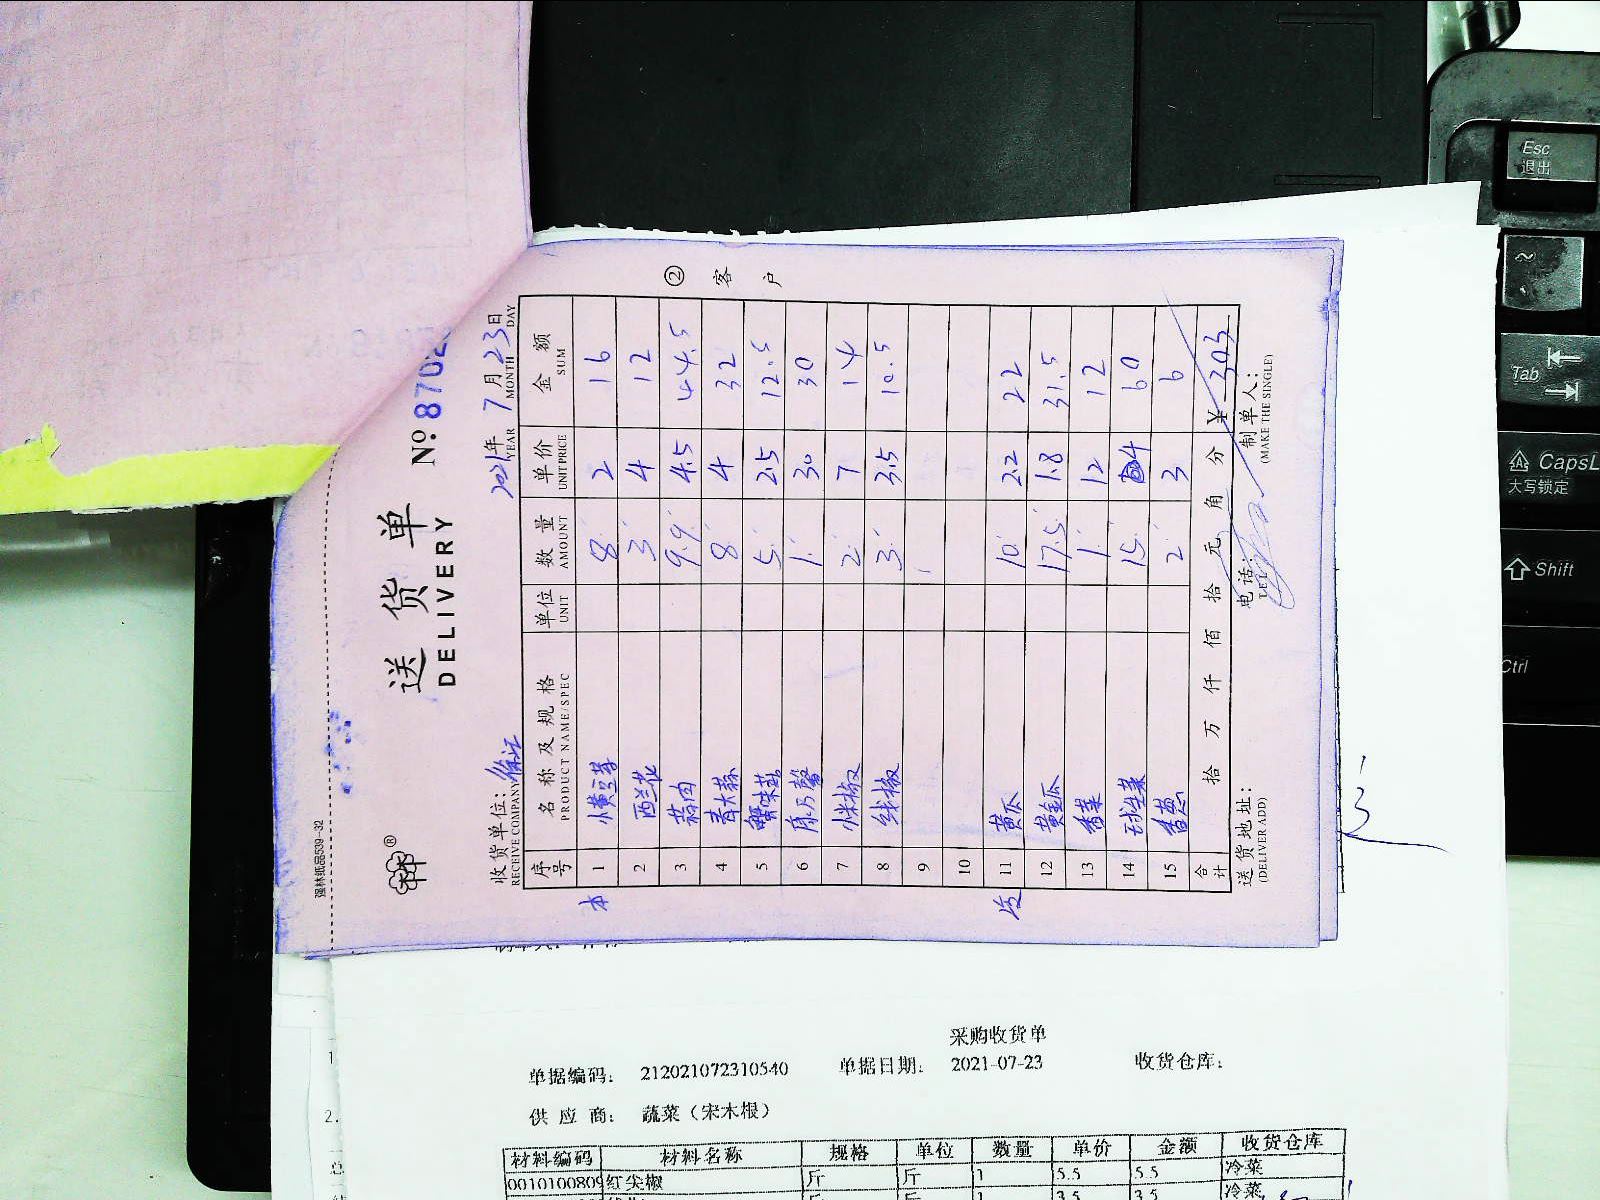 强林纸品539-32
送货单
DELIVERY
No. 8702
收货单位:
RECEIVE COMPANY
2021年 7月23日
YEAR MONTH DAY
② 客户
序号 名称及规格 单位 数量 单价 金额
PRODUCT NAME/SPEC UNIT AMOUNT UNIT PRICE SUM
1 小黄豆芽 8 2 16
2 西兰花 3 4 12
3 蒜肉 9.9 4.5 44.5
4 青大蒜 8 4 32
5 蟹味菇 5 2.5 12.5
6 康乃馨 1 30 30
7 小米椒 2 7 14
8 线椒 3 3.5 10.5
9
10
11 黄瓜 10 2.2 22
12 黄金瓜 17.5 1.8 31.5
13 香菜 1 12 12
14 球生菜 15 4 60
15 香葱 2 3 6
合计 拾 万 仟 佰 拾 元 角 分 ¥ 303
送货地址: 电话: 制单人:
(DELIVER ADD) TEL (MAKE THE SINGLE)
3
采购收货单
单据编码: 212021072310540 单据日期: 2021-07-23 收货仓库:
供应商: 蔬菜（宋木根）
材料编码 材料名称 规格 单位 数量 单价 金额 收货仓库
0010100809 红尖椒 斤 斤 1 5.5 5.5 冷菜
1 3.5 3.5 冷菜
Esc
退出
~
Tab
CapsL
大写锁定
Shift
Ctrl